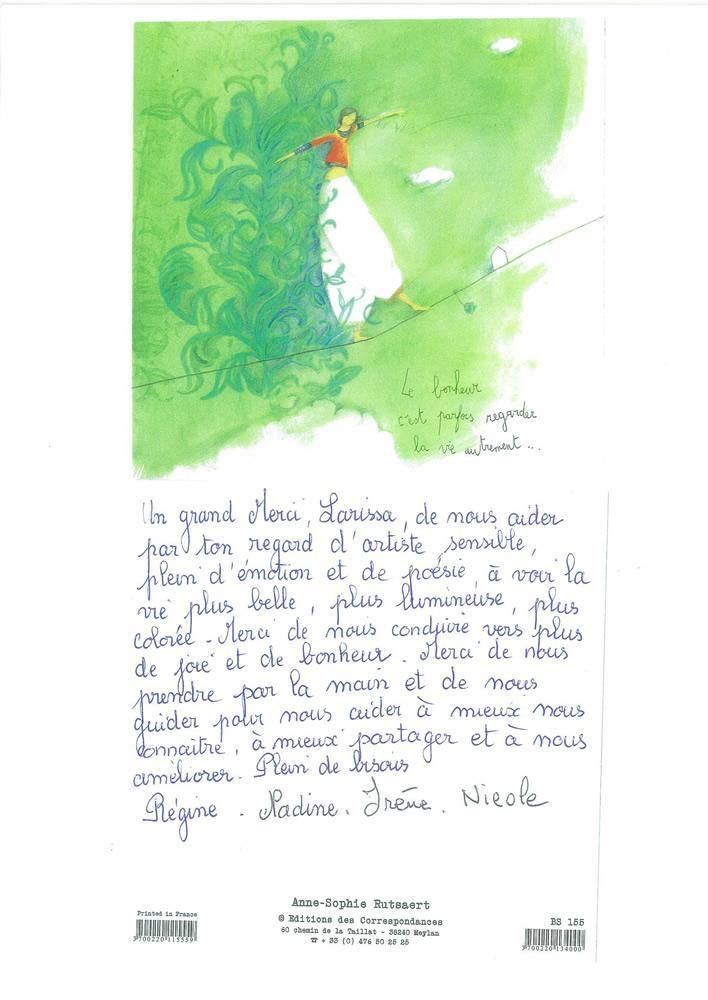 Le bonheur
c'est parfois regarder
la vie autrement ...
Un grand Merci, Larissa, de nous aider
par ton regard d'artiste sensible,
plein d'émotion et de poésie, à voir la
vie plus belle, plus lumineuse, plus
colorée. Merci de nous conduire vers plus
de joie et de bonheur. Merci de nous
prendre par la main et de nous
guider pour nous aider à mieux nous
connaître, à mieux partager et à nous
améliorer. Plein de bisous
Régine. Nadine. Irène. Nicole
Anne-Sophie Rutsaert
Printed in France
© Editions des Correspondances
BS 155
60 chemin de la Taillat - 38240 Meylan
☎ + 33 (0) 476 50 25 25
3700220115559
3700220134000